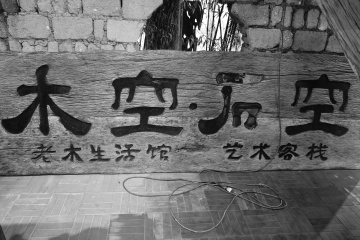 木空·后空
老木生活馆 艺术客栈